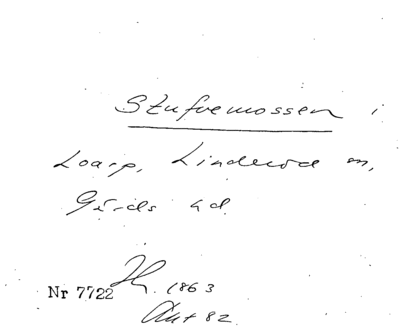 Stufvemossen i
Loarp, Linderöd sn,
Gärds hd
Nr 7722 1863
Akt 82